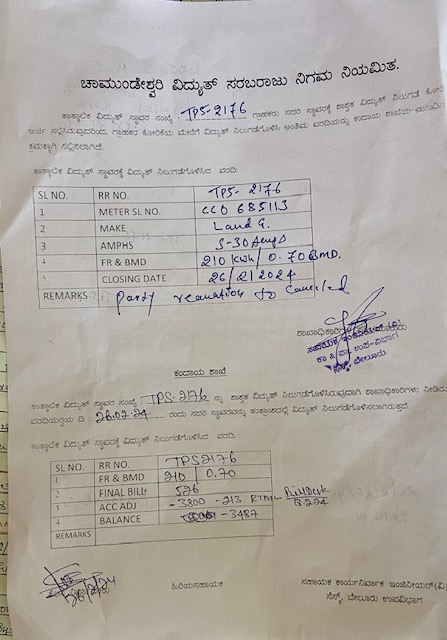 ಚಾಮುಂಡೇಶ್ವರಿ ವಿದ್ಯುತ್ ಸರಬರಾಜು ನಿಗಮ ನಿಯಮಿತ.
ತಾತ್ಕಾಲಿಕ ವಿದ್ಯುತ್ ಸ್ಥಾವರ ಸಂಖ್ಯೆ: TPS-2176 ಗ್ರಾಹಕರು ಸದರಿ ಸ್ಥಾವರಕ್ಕೆ ಶಾಶ್ವತ ವಿದ್ಯುತ್ ನಿಲುಗಡೆ ಕೋರಿ
ಅರ್ಜಿ ಸಲ್ಲಿಸಿರುವುದರಿಂದ, ಗ್ರಾಹಕರ ಕೋರಿಕೆಯ ಮೇರೆಗೆ ವಿದ್ಯುತ್ ನಿಲುಗಡೆಗೊಳಿಸಿ ಅಂತಿಮ ವರದಿಯನ್ನು ಕಂದಾಯ ಶಾಖೆಯ ಮುಂದಿನ
ಕ್ರಮಕ್ಕಾಗಿ ಸಲ್ಲಿಸಲಾಗಿದೆ.
ತಾತ್ಕಾಲಿಕ ವಿದ್ಯುತ್ ಸ್ಥಾವರಕ್ಕೆ ವಿದ್ಯುತ್ ನಿಲುಗಡೆಗೊಳಿಸಿದ ವರದಿ:
SL NO. RR NO. TPS-2176
1 METER SL NO. CCO 685113
2 MAKE Land G.
3 AMPHS 5-30 Amps
4 FR & BMD 210 KWH/ 0.70 BMD.
5 CLOSING DATE 26/2/2024
REMARKS party to cancled
ಸಹಾಯಕ ಇಂಜಿನಿಯರ್ (ವಿ)
ಕಾ & ಪಾ ಉಪ-ವಿಭಾಗ
ಸೆಸ್ಕ್, ಬೇಲೂರು
ಕಂದಾಯ ಶಾಖೆ
ತಾತ್ಕಾಲಿಕ ವಿದ್ಯುತ್ ಸ್ಥಾವರ ಸಂಖ್ಯೆ: TPS-2176 ನ್ನು ಶಾಶ್ವತ ವಿದ್ಯುತ್ ನಿಲುಗಡೆಗೊಳಿಸಿರುವುದಾಗಿ ಶಾಖಾಧಿಕಾರಿಗಳು ನೀಡಿರು
ವರದಿಯನ್ವಯ ದಿ: 26.02.24 ರಂದು ಸದರಿ ಸ್ಥಾವರವನ್ನು ತಂತ್ರಾಂಶದಲ್ಲಿ ವಿದ್ಯುತ್ ನಿಲುಗಡೆಗೊಳಿಸಲಾಗಿರುತ್ತದೆ.
ತಾತ್ಕಾಲಿಕ ವಿದ್ಯುತ್ ಸ್ಥಾವರಕ್ಕೆ ವಿದ್ಯುತ್ ನಿಲುಗಡೆಗೊಳಿಸಿದ ವರದಿ:
SL NO. RR NO. TPS2176
1 FR & BMD 210 / 0.70
2 FINAL BILL 526
3 ACC ADJ -3800 -213
4 BALANCE -3487
REMARKS
ಹಿರಿಯಸಹಾಯಕ ಸಹಾಯಕ ಕಾರ್ಯನಿರ್ವಾಹಕ ಇಂಜಿನೀಯರ್(ವಿ)
ಸೆಸ್ಕ್, ಬೇಲೂರು ಉಪವಿಭಾಗ